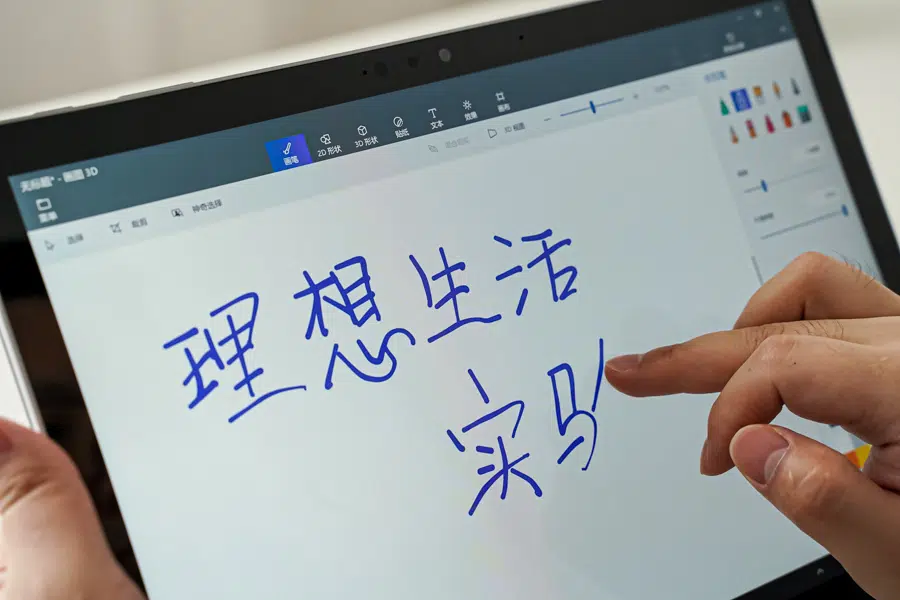 无标题* - 画图 3D
菜单
画笔
2D 形状
3D 形状
贴纸
文本
效果
画布
选择
裁剪
神奇选择
3D 视图
理想生活
实